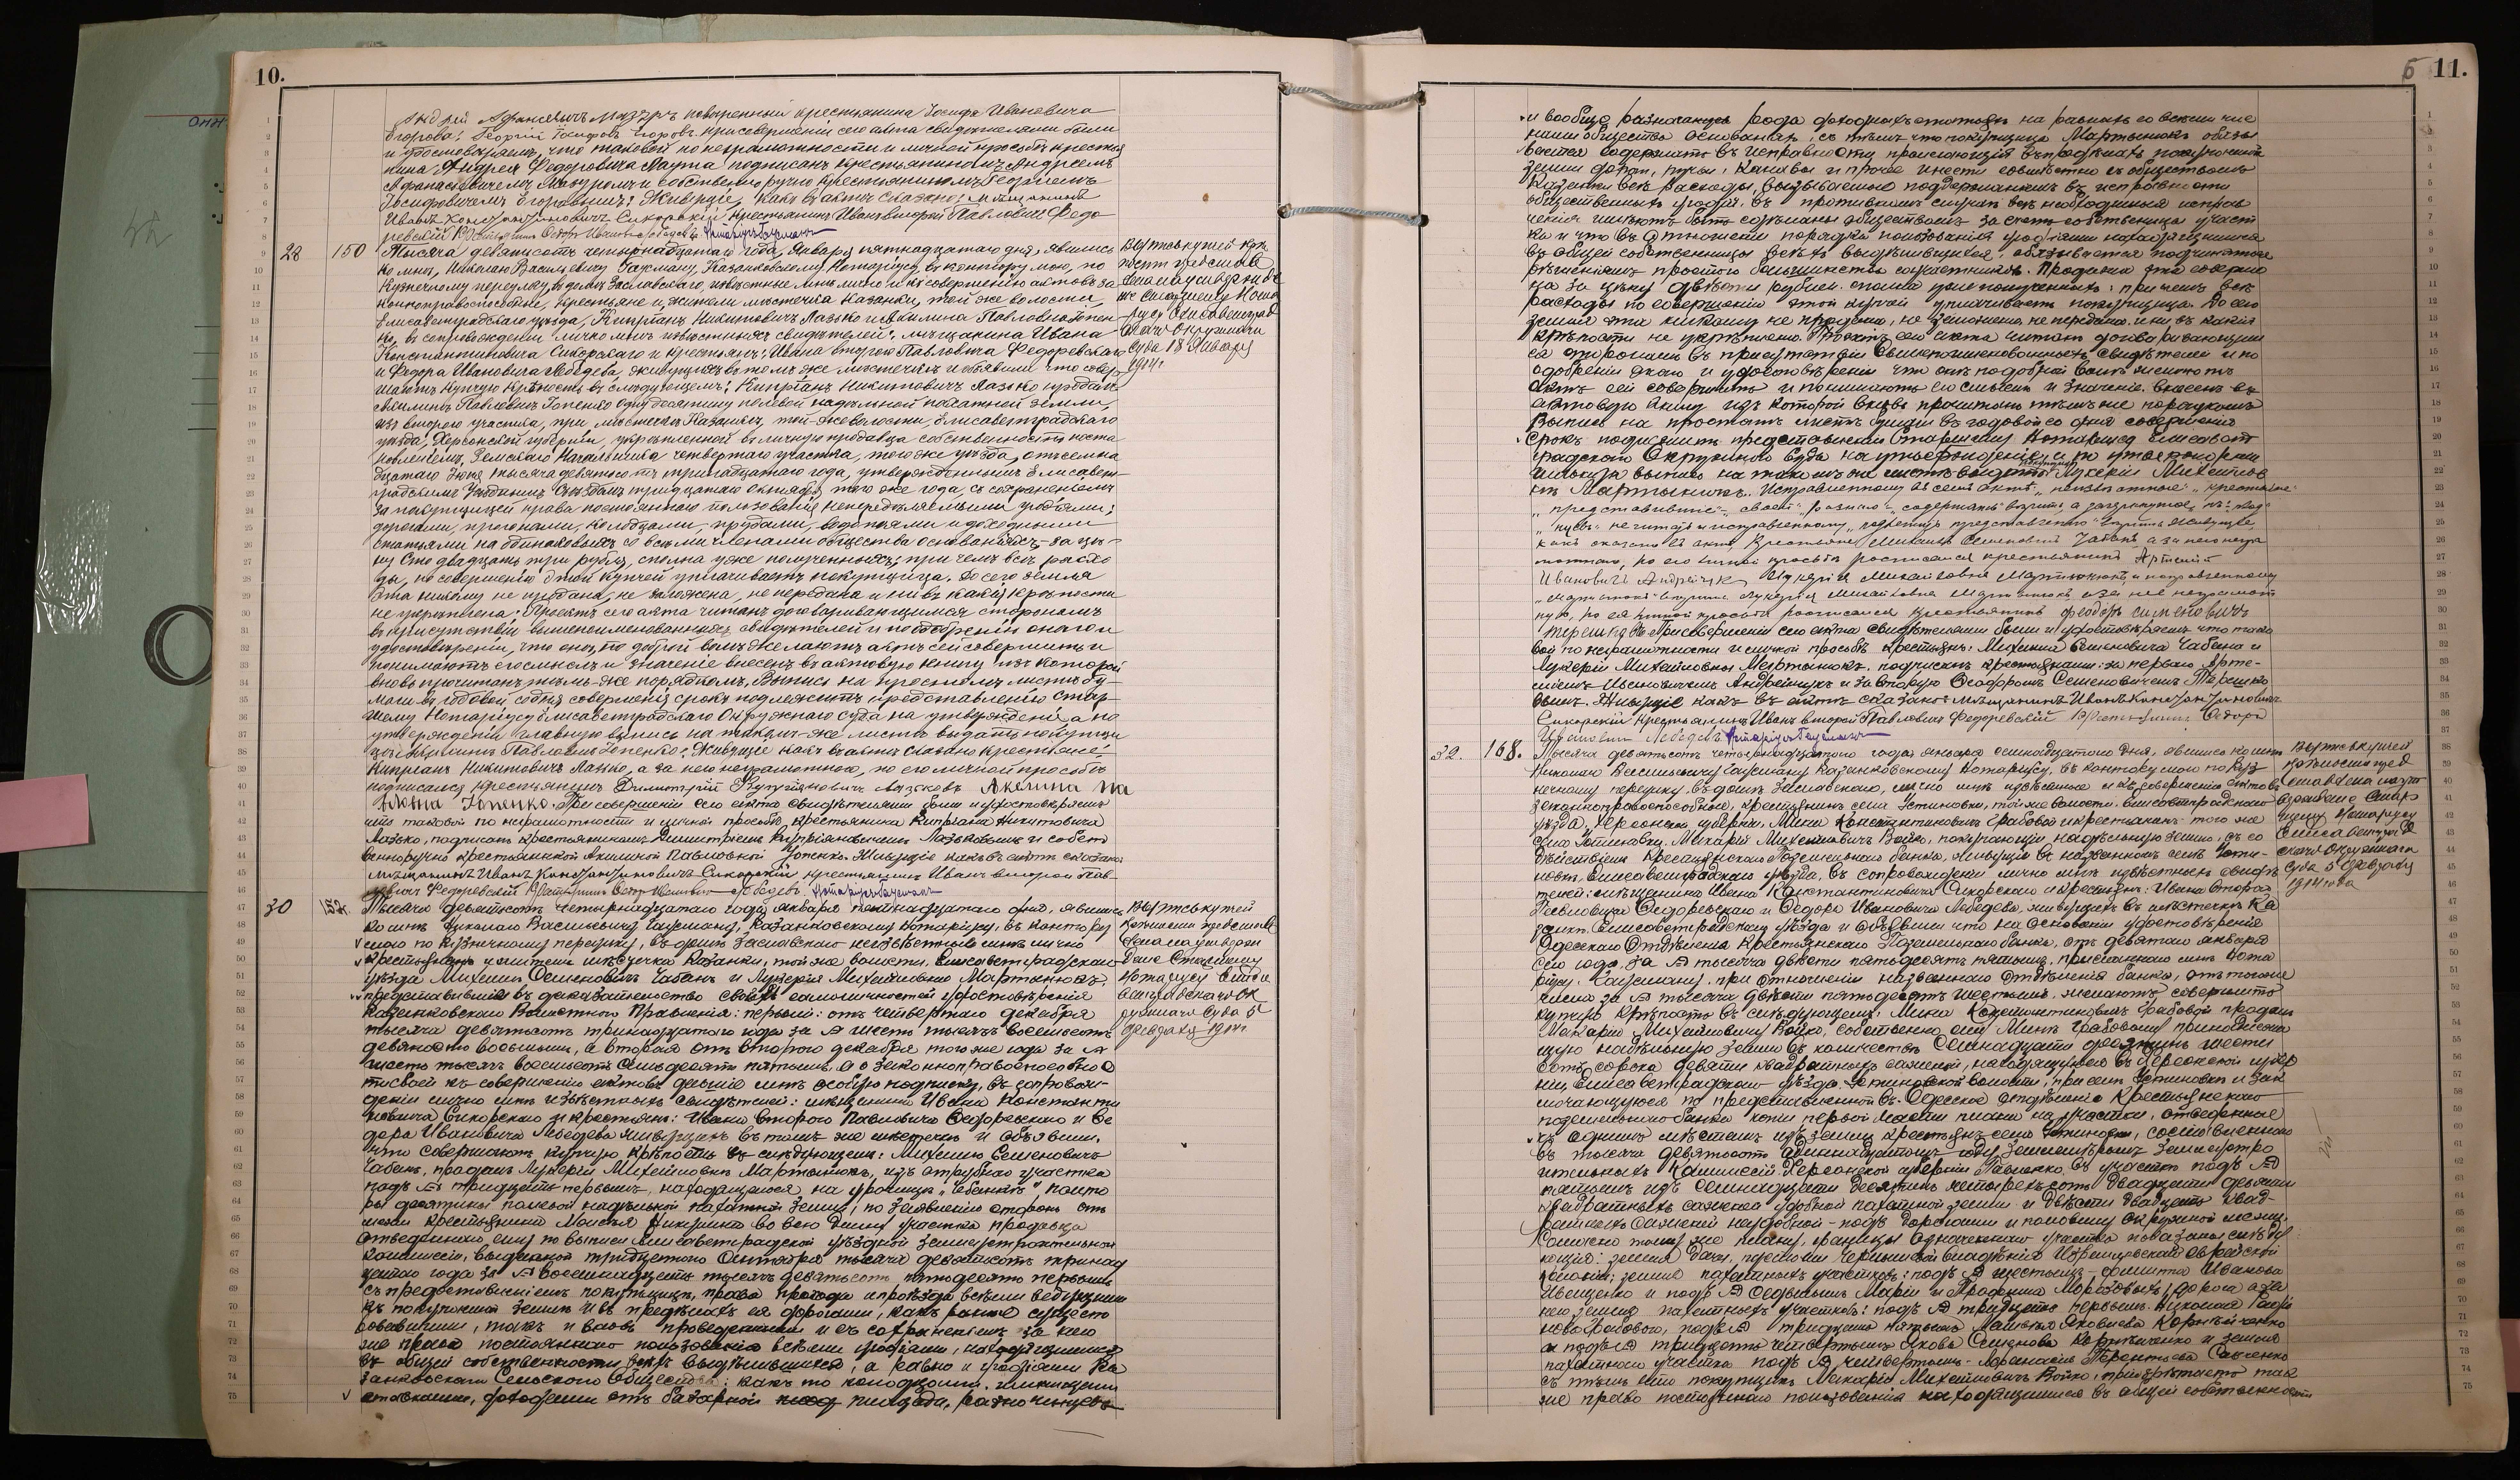 10.
Андрей Афанасьевичъ Мазуръ повѣренный крестьянина Іосифа Ивановича
Егорова: Георгій Іосифовъ Егоровъ. При совершеніи сего акта свидѣтелями были
и удостовѣряемъ, что таковой по неграмотности и личной просьбѣ крестья
нина Андрея Федоровича подписанъ крестьяниномъ Андреемъ
Афанасьевичемъ Мазуромъ и собственноручно крестьяниномъ Георгіемъ
Іосифовичемъ Егоровымъ: Живущіе, какъ в актѣ сказано: мѣщанинъ
Иванъ Константиновичъ Сикорскій крестьянинъ Иванъ второй Павловичъ Федо
ревскій Крестьянинъ Федоръ Ивановичъ Лебедевъ. Нотаріусъ Гаусманъ
28 150 Тысяча девятьсотъ четырнадцатаго года, Января пятнадцатаго дня, явились
ко мнѣ, Николаю Васильевичу Гаусману, Казанковскому Нотаріусу, въ контору мою, по
Кузнечному переулку, въ домѣ Заславскаго, извѣстные мнѣ лично и къ совершенію актовъ за
коноправоспособные, крестьяне и жители мѣстечка Казанки, той же волости,
Елисаветградскаго уѣзда, Кипріанъ Никитовичъ Лазько и Акилина Павловна Гопен
ко, въ сопровожденіи лично мнѣ извѣстныхъ свидѣтелей: мѣщанина Ивана
Константиновича Сикорскаго и крестьянъ: Ивана второго Павловича Федоревскаго
и Федора Ивановича Лебедева, живущихъ въ томъ же мѣстечкѣ и объявили что совер
шаютъ купчую крѣпость въ слѣдующемъ: Кипріанъ Никитовичъ Лазько продалъ
Акилинѣ Павловнѣ Гопенко одну десятину полевой надѣльной пахатной земли,
изъ второго участка, при мѣстечкѣ Казанкѣ, той-же волости, Елисаветградскаго
уѣзда, Херсонской губерніи, укрѣпленной въ личную продавца собственность поста
новленіемъ Земскаго Начальника четвертаго участка, того же уѣзда, отъ семна
дцатаго Іюня тысяча девятьсотъ тринадцатаго года, утвержденнымъ Елисавет-
градскимъ Уѣзднымъ Съѣздомъ тридцатаго Октября того же года, съ сохраненіемъ
за покупщицей права постояннаго пользованія непередѣляемыми угодіями:
дорогами, прогонами, колодцами, прудами, водопоями и доходными
статьями на одинаковыхъ со всѣми членами общества основаніяхъ, за цѣ-
ну Сто двадцать три рубля, сполна уже полученныхъ; при чемъ всѣ расхо
ды, по совершенію этой купчей уплачиваетъ покупщица. До сего земля
эта никому не продана, не заложена, не передана и ни въ какія крѣпости
не укрѣплена. Проектъ сего акта читанъ договаривающимся сторонамъ
въ присутствіи вышепоименованныхъ свидѣтелей и по одобреніи онаго и
удостовѣреніи, что они, по доброй волѣ желаютъ актъ сей совершить и
понимаютъ его смыслъ и значеніе внесенъ въ актовую книгу изъ которой
вновь прочитанъ тѣмъ-же порядкомъ. Выпись на простомъ листѣ бу-
маги въ годовой со дня совершенія срокъ подлежитъ представленію Стар-
шему Нотаріусу Елисаветградскаго Окружнаго суда на утвержденіе, а по
утвержденіи главную выпись на такомъ-же листѣ выдать покупщи
цѣ Акилинѣ Павловнѣ Гопенко. Живущіе какъ въ актѣ сказано крестьяне:
Кипріанъ Никитовичъ Лазько, а за него неграмотнаго, по его личной просьбѣ
подписался крестьянинъ Димитрій Купріяновичъ Лазьковъ Акелина Па
вловна Гопенко. При совершеніи сего акта свидѣтелями были и удостовѣряемъ
что таковой по неграмотности и личной просьбѣ, крестьянина Кипріана Никитовича
Лазько, подписанъ крестьяниномъ Димитріемъ Купріяновичемъ Лазьковымъ и собст
венноручно крестьянкой Акилиной Павловной Гопенко. Живущіе какъ въ актѣ сказано:
мѣщанинъ Иванъ Константиновичъ Сикорскій крестьянинъ Иванъ второй Пав
ловичъ Федоревскій Крестьянинъ Федоръ Ивановичъ Лебедевъ. Нотаріусъ Гаусманъ
Выпись купчей крѣ
пости представ
лена на утвержде
ніе Старшему Нота
ріусу Елисаветград
скаго Окружнаго
Суда 18 Января
1914г.
30 152. Тысяча девятьсотъ четырнадцатаго года января пятнадцатаго дня, явились
ко мнѣ Николаю Васильевичу Гаусману, Казанковскому Нотаріусу, въ контору
мою по Кузнечному переулку, въ домѣ Заславскаго неизвѣстные мнѣ лично
крестьяне и жители мѣстечка Казанки, той же волости, Елисаветградскаго
уѣзда Михаилъ Семеновичъ Чабанъ и Лукерія Михайловна Мартынюкъ,
представившіе въ доказательство своей самоличности удостовѣренія
Казанковскаго Волостного Правленія: первый: отъ четвертаго декабря
тысяча девятьсотъ тринадцатаго года за № шесть тысячъ восемьсотъ
девяносто восьмымъ, а вторая отъ второго декабря того же года за №
шесть тысячъ восемьсотъ семьдесятъ пятымъ, а о законноправоспособно
ти своей къ совершенію актовъ давшіе мнѣ, особую подписку, въ сопровож-
деніи лично мнѣ извѣстныхъ свидѣтелей: мѣщанина Ивана Константи
новича Сикорскаго и крестьянъ: Ивана второго Павловича Федоревскаго и Фе
дора Ивановича Лебедева живущихъ въ томъ же мѣстечкѣ и объявили,
что совершаютъ купчую крѣпость въ слѣдующемъ: Михаилъ Семеновичъ
Чабанъ, продалъ Лукеріи Михайловнѣ Мартынюкъ, изъ отрубного участка
подъ № тридцать первымъ, находящагося на урочищѣ, полто
ры десятины полевой надѣльной пахатной земли, по заявленію сторонъ отъ
межи крестьянина Моисея Никулина во всю длину участка продавца
отведеннаго ему по выписи Елисаветградской уѣздной землеустроительной
комиссіи, выданной тридцатаго Сентября тысяча девятьсотъ тринад
цатаго года за № восемнадцать тысячъ девятьсотъ пятьдесятъ первымъ
съ предоставленіемъ покупщицѣ, права прохода и проѣзда всѣми ведущими
къ покупаемой землѣ и въ предѣлахъ ея дорогами, какъ ранѣе сущест
вовавшими, такъ и вновь проведенными и съ сохраненіемъ за нею
же права постояннаго пользованія всѣми угодіями, находящимися
въ общей собственности всѣхъ выдѣлившихся, а равно и угодіями Ка
занковскаго Сельскаго Общества: какъ то колодцами,
доходами отъ базарной площади,
Выпись купчей
крѣпости представ
лена на утверж
деніе Старшему
Нотаріусу Елиса
ветградскаго Ок
ружнаго Суда 5
Февраля 1914г.
5 11.
и вообще разнаго рода доходныхъ статей на равныхъ со всѣми чле
нами общества основаніяхъ, съ тѣмъ что покупщица Мартынюкъ обязы
вается содержать въ исправности пролегающія въ предѣлахъ покупаемой
земли дороги, ручьи, канавы и прочее и нести совмѣстно съ обществомъ
Казанки всѣ расходы, вызываемые поддержаніемъ въ исправности
общественныхъ угодій, въ противномъ случаѣ всѣ необходимыя исправ
ленія имѣютъ быть сдѣланы обществомъ за счетъ собственницы участ
ка и что въ отношеніи порядка пользованія угодіями находящимися
въ общей собственности всѣхъ выдѣлившихся, обязывается подчиняться
рѣшеніямъ простого большинства соучастниковъ. Продажа эта соверше
на за цѣну двѣсти рублей, сполна уже полученныхъ; при чемъ всѣ
расходы по совершенію этой купчей уплачиваетъ покупщица. До сего
земля эта никому не продана, не заложена, не передана и ни въ какія
крѣпости не укрѣплена. Проектъ сего акта читанъ договаривающим
ся сторонамъ въ присутствіи вышепоименованныхъ свидѣтелей и по
одобреніи онаго и удостовѣреніи что они по доброй волѣ желаютъ
актъ сей совершить и понимаютъ его смыслъ и значеніе внесенъ въ
актовую книгу изъ которой вновь прочитанъ тѣмъ же порядкомъ
Выпись на простомъ листѣ бумаги въ годовой со дня совершенія
срокъ подлежитъ представленію Старшему Нотаріусу Елисавет
градскаго Окружнаго Суда на утвержденіе, а по утвержденіи
главную выпись на такомъ же листѣ выдать Лукеріи Михайлов
нѣ Мартынюкъ. Исправленному въ семъ актѣ: "неизвѣстные" "крестьяне"
"представившіе" "своей"
не читать и исправленному "подлежитъ представленію" вѣрить Живущіе,
какъ сказано въ актѣ, Крестьяне Михаилъ Семеновичъ Чабанъ, а за него негра
мотнаго, по его личной просьбѣ росписался крестьянинъ Артемій
Ивановичъ Андрейчукъ Лукерія Михайловна Мартынюкъ, и исправленному
Лукерія Михайловна Мартынюкъ, а за нее неграмот
ную, по ея личной просьбѣ росписался крестьянинъ Феодоръ Семеновичъ
Терешко. При совершеніи сего акта свидѣтелями были и удостовѣряемъ что тако
вой по неграмотности и личной просьбѣ крестьянъ: Михаила Семеновича Чабана и
Лукеріи Михайловны Мартынюкъ, подписанъ крестьянами: за перваго Арте-
міемъ Ивановичемъ Андрейчукъ и за вторую Феодоромъ Семеновичемъ
Живущіе какъ въ актѣ сказано: мѣщанинъ Иванъ Константиновичъ
Сикорскій крестьянинъ Иванъ второй Павловичъ Федоревскій Крестьянинъ Федоръ
Ивановичъ Лебедевъ Нотаріусъ Гаусманъ
32. 168. Тысяча девятьсотъ четырнадцатаго года января семнадцатаго дня, явились ко мнѣ
Николаю Васильевичу Гаусману Казанковскому Нотаріусу, въ контору мою по Куз
нечному переулку въ домѣ Заславскаго, лично мнѣ извѣстные и къ совершенію актовъ
законноправоспособные, крестьянинъ села Устиновки, той же волости, Елисаветградскаго
уѣзда, Херсонской губерніи, Мина Константиновичъ Грабовой и крестьянинъ того же
села Устиновки, Макарій Михайловичъ Бойко, покупающій надѣльную землю, съ со
дѣйствіемъ Крестьянскаго Поземельнаго банка, живущіе въ названномъ селѣ Усти-
новкѣ, Елисаветградскаго уѣзда, въ сопровожденіи лично мнѣ извѣстныхъ свидѣ
телей: мѣщанина Ивана Константиновича Сикорскаго и крестьянъ: Ивана второго
Павловича Федоревскаго и Федора Ивановича Лебедева, живущихъ въ мѣстечкѣ Ка
занкѣ, Елисаветградскаго уѣзда и объявили что на основаніи удостовѣренія
Одесскаго Отдѣленія Крестьянскаго Поземельнаго банка, отъ девятаго января
сего года, за № тысяча двѣсти пятьдесятъ пятымъ, присланнаго мнѣ Нота
ріусу Гаусману, при отношеніи названнаго отдѣленія банка, отъ того же
числа за № тысяча двѣсти пятьдесятъ шестымъ, желаютъ совершить
купчую крѣпость въ слѣдующемъ: Мина Константиновичъ Грабовой продалъ
Макарію Михайловичу Бойко, собственно ему Минѣ Грабовому принадлежа
щую надѣльную землю въ количествѣ семнадцати десятинъ шести
сотъ сорока девяти квадратныхъ саженей, находящуюся въ Херсонской губер
ніи, Елисаветградскаго уѣзда, Устиновской волости, при селѣ Устиновкѣ и зак
лючающуюся по представленной въ Одесское отдѣленіе Крестьянскаго
поземельнаго банка копіи первой части плана на участки, отведенные
къ однимъ мѣстамъ изъ земли крестьянъ села Устиновки, составленнаго
въ тысяча девятьсотъ одиннадцатомъ году Землемѣромъ Землеустро
ительныхъ Комиссій Херсонской губерніи Гавленко, въ участкѣ подъ №
пятымъ изъ семнадцати десятинъ четырехсотъ двадцати девяти
квадратныхъ саженей удобной пахатной земли и двѣсти двадцать квад-
ратныхъ саженей неудобной - подъ дорогами и половину окружной межи.
Согласно тому же плану, границы означеннаго участка показаны слѣду
ющія: земля дачи,
земли пахатныхъ участковъ: подъ № шестымъ - Филиппа Иванова
Иващенко и подъ № седьмымъ Маріи и Трофима Морозовыхъ, дорога а за
нею земля пахатныхъ участковъ: подъ № тридцать первымъ Николая
Грабового, подъ № тридцать пятымъ Матвѣя Яковлева Корнѣйченко
и подъ № тридцать четвертымъ Якова Семенова Корнѣйченко и земля
пахатнаго участка подъ № четвертымъ - Афанасія Терентьева Савченко
съ тѣмъ что покупщикъ Макарій Михайловичъ Бойко, пріобрѣтаетъ так
же право постояннаго пользованія находящимися въ общей собственности
Выпись купчей
крѣпости пред
ставлена на ут
вержденіе Стар
шему Нотаріусу
Елисаветград
скаго Окружнаго
Суда 5 Февраля
1914 года